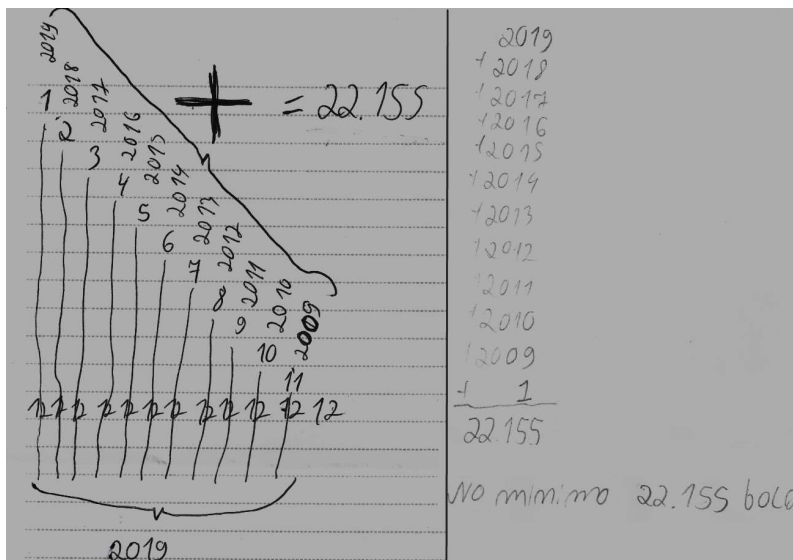 2019
1 2018
2 2017
3 2016
4 2015
5 2014
6 2013
7 2012
8 2011
9 2010
10 2009
11
12 12 12 12 12 12 12 12 12 12 12 12
2019
+ = 22.155
2019
+2018
+2017
+2016
+2015
+2014
+2013
+2012
+2011
+2010
+2009
+ 1
22.155
No minimo 22.155